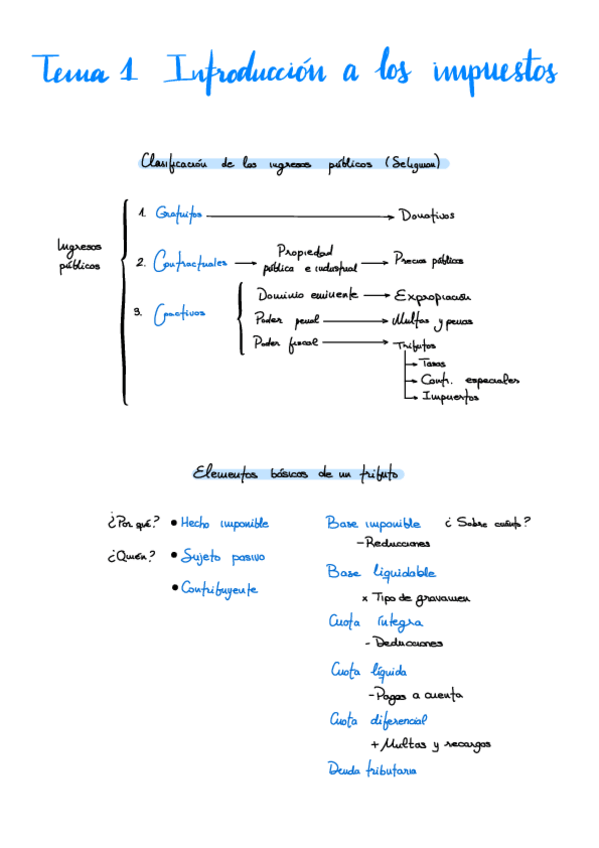 Tema 1 Introducción a los impuestos
Clasificación de los ingresos públicos (Seligman)
Ingresos públicos
1. Gratuitos → Donativos
2. Contractuales → Propiedad pública e industrial → Precios públicos
3. Coactivos
Dominio eminente → Expropiación
Poder penal → Multas y penas
Poder fiscal → Tributos
→ Tasas
→ Contr. especiales
→ Impuestos
Elementos básicos de un tributo
¿Por qué? • Hecho imponible
¿Quién? • Sujeto pasivo
• Contribuyente
Base imponible ¿Sobre cuánto?
- Reducciones
Base liquidable
x Tipo de gravamen
Cuota íntegra
- Deducciones
Cuota líquida
- Pagos a cuenta
Cuota diferencial
+ Multas y recargos
Deuda tributaria